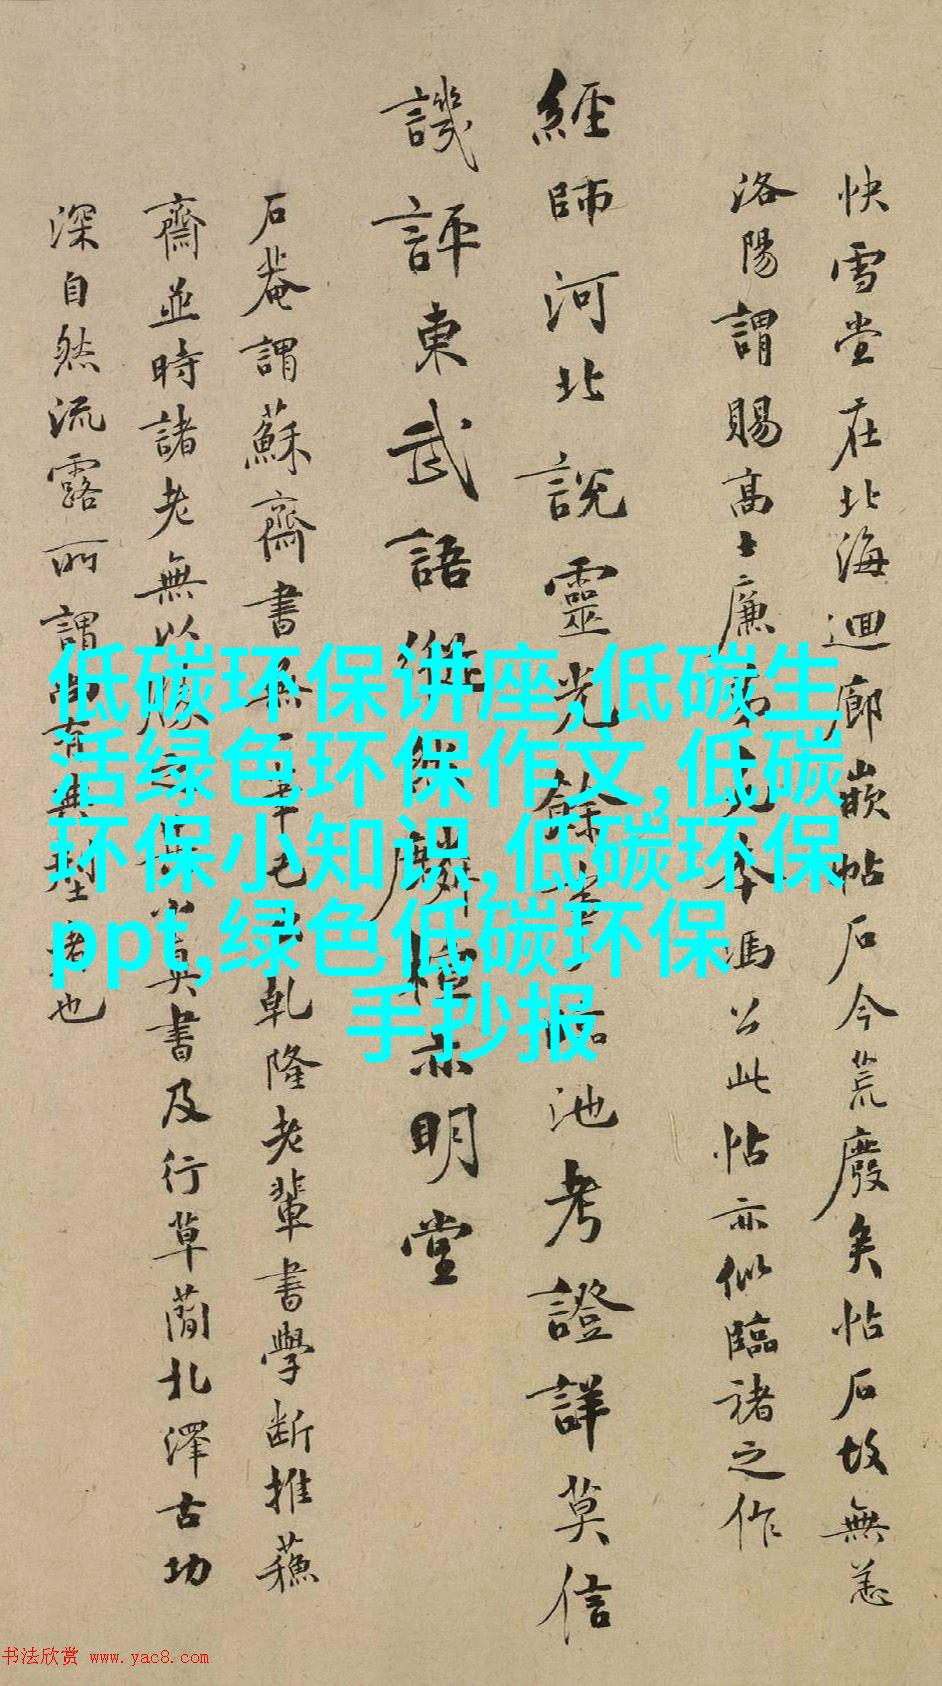 快雪堂在北海迴廊嵌帖石今荒廢矣帖石故無恙
洛陽謂賜高士廉馮公此帖亦似臨褚之作
經師河北說靈光餘事臨池考證詳莫信
譏評東武語麟檀亦明堂
石菴謂蘇齋書無一筆乾隆老輩書學斷推蘓
齋並時諸老無以勝之真書及行草蘭北澤古功
深自然流露所謂尚有典型者也
低碳环保讲座,低碳生
活绿色环保作文,低碳
环保小知识,低碳环保
ppt,绿色低碳环保
手抄报
书法欣赏 www.yac8.com